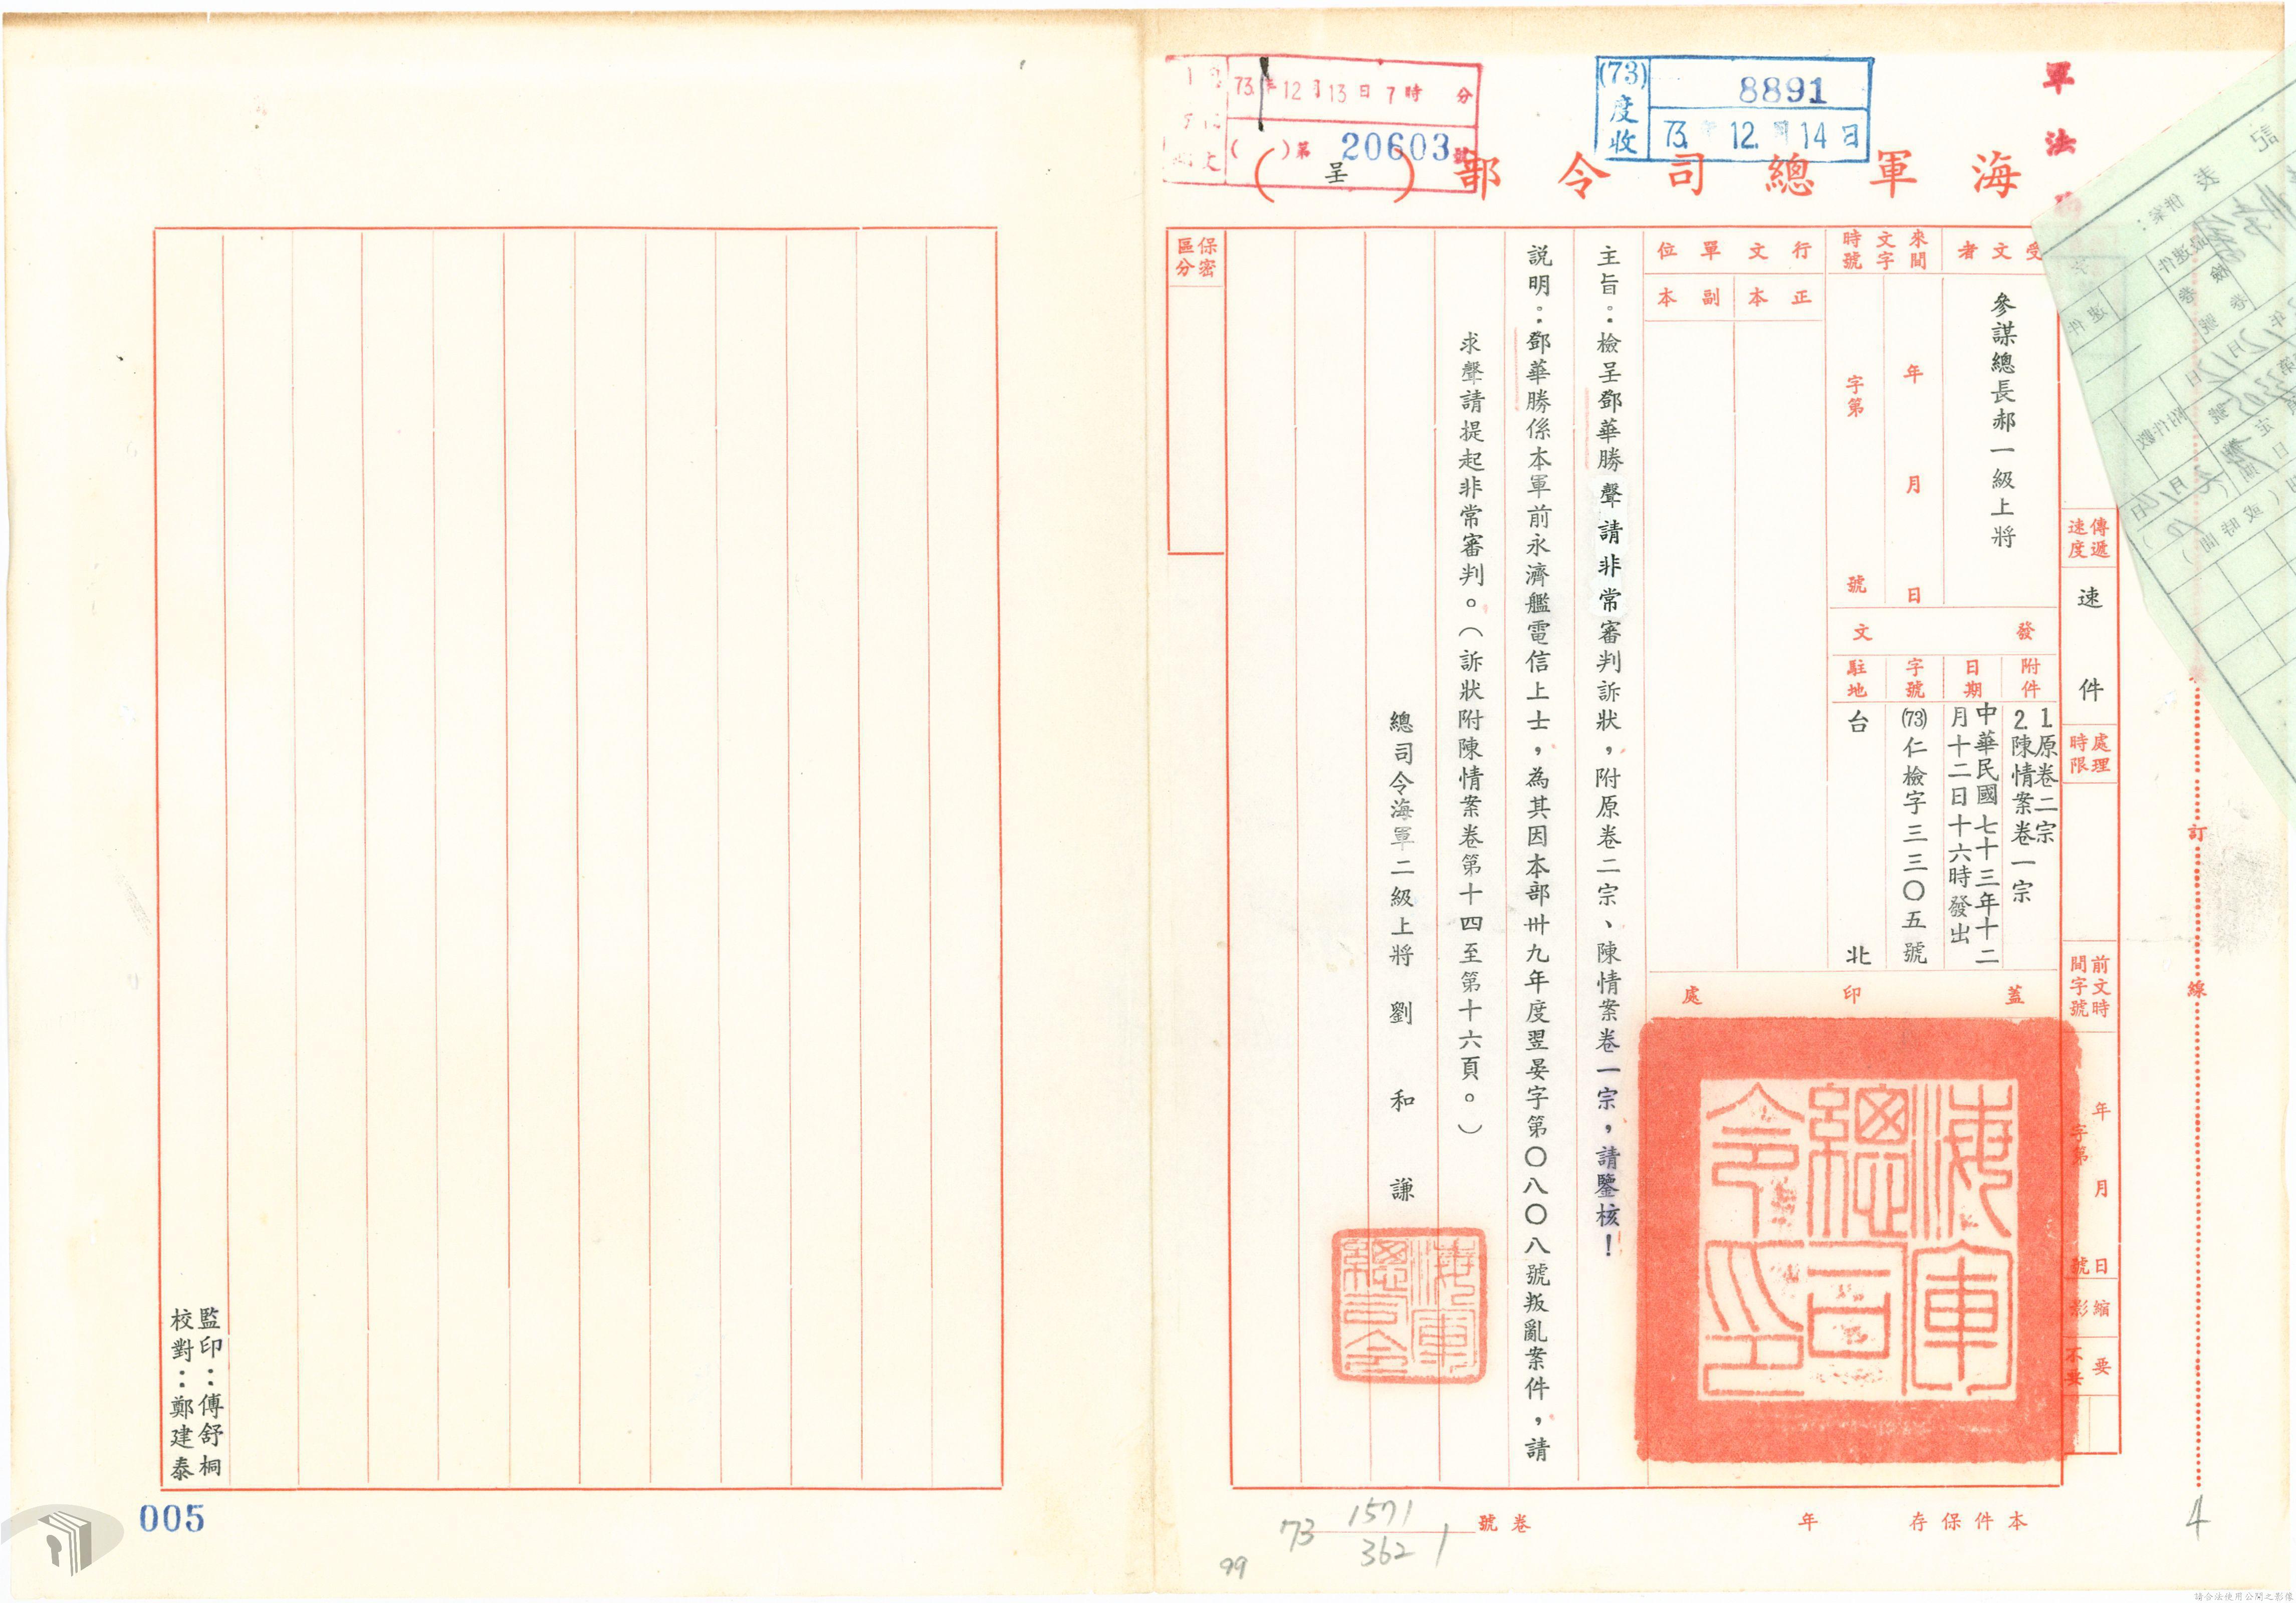 軍法
73年12月13日7時 分
( )第20603號
(73)度收
8891
73年12月14日
海軍總司令部(呈)
傳遞速度
速件
處理時限
前文時間字號
年 月 日
字第 號
縮影
要
不要
受文者
參謀總長郝一級上將
來文時間字號
年 月 日
字第 號
行文單位
正本
副本
發文
附件
1.原卷二宗
2.陳情案卷一宗
日期
中華民國七十三年十二
月十二日十六時發出
字號
(73)仁檢字三三〇五號
駐地
台北
蓋印處
海軍總司令印
主旨：檢呈鄧華勝聲請非常審判訴狀，附原卷二宗、陳情案卷一宗，請鑒核！
說明：鄧華勝係本軍前永濟艦電信上士，為其因本部卅九年度翌晏字第〇八〇八號叛亂案件，請
求聲請提起非常審判。（訴狀附陳情案卷第十四至第十六頁。）
總司令海軍二級上將劉和謙
海軍總司令
保密區分
訂線
本件保存 年
卷號
73 1571
362 1
99
4
監印：傅舒桐
校對：鄭建泰
005
請合法使用公開之影像